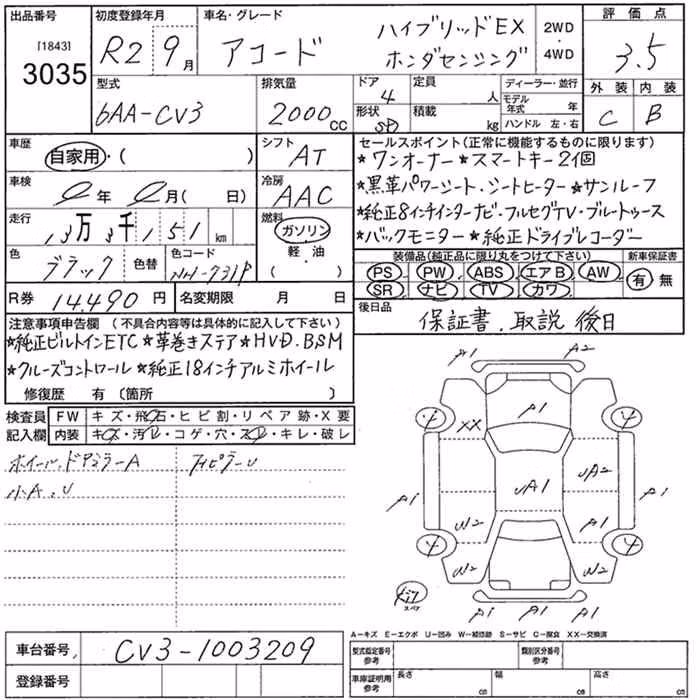 出品番号
[1843]
3035
初度登録年月
R2 9月
車名・グレード
アコード
ハイブリッドEX
ホンダセンシング
2WD
・
4WD
評価点
3.5
外装 内装
C B
型式
6AA-CV3
排気量
2000cc
ドア
4
形状
SD
定員 人
積載 kg
ディーラー・並行
モデル年式 年
ハンドル 左・右
車歴
自家用・( )
シフト
AT
車検
年 月( 日)
冷房
AAC
走行
13万3千151km
燃料
ガソリン
軽・油
( )
色
ブラック
色替
色コード
NH-731P
R券 14,490円
名変期限 月 日
セールスポイント(正常に機能するものに限ります)
★ワンオーナー★スマートキー2個
★黒革パワーシート・シートヒーター★サンルーフ
★純正8インチインターナビ・フルセグTV・ブルートゥース
★バックモニター★純正ドライブレコーダー
装備品(純正品に限り丸をつけて下さい)
PS PW ABS エアB AW
SR ナビ TV カワ
新車保証書
有 無
後日品
保証書、取説 後日
注意事項申告欄(不具合内容等は具体的に記入して下さい)
★純正ビルトインETC★革巻きステア★HVD.BSM
★クルーズコントロール★純正18インチアルミホイール
修復歴 有〔箇所 〕
検査員記入欄
FW キズ・飛石・ヒビ割・リペア跡・X要
内装 キズ・汚レ・コゲ・穴・スレ・キレ・破レ
ホイール、ドアミラーA
小A、U
A1 A2
A1
XX
A1 UA1 UA2 A1
W2 A1
W2 W2
スペア
A1 A1 A1
A-キズ E-エクボ U-凹み W-補修跡 S-サビ C-腐食 XX-交換済
車台番号 CV3-1003209
登録番号
型式指定番号
参考
類別区分番号
参考
車庫証明用
参考
長さ cm
幅 cm
高さ cm